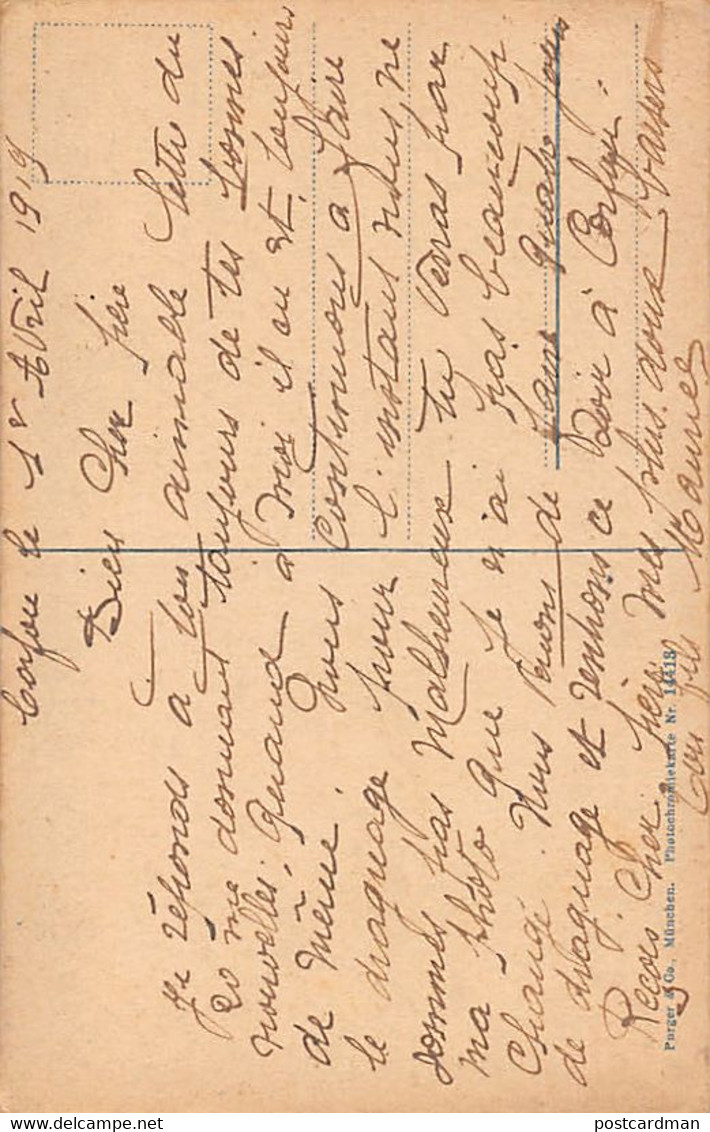 Corfou le 1er Avril 1919
Bien Cher père
Je réponds à ton aimable lettre du
20 me donnant toujours de tes bonnes
nouvelles, quand à moi il en est toujours
de même. Nous continuons à faire
le draguage pour l'instant nous ne
sommes pas malheureux tu veras par
ma photo que je n'ai pas beaucoup
changé. Nous venons de faire quatre jours
de draguage et rentrons ce soir à Corfou.
Reçois Cher père mes plus doux baisers
ton fils Maurice
Purger & Co., München. Photochromiekarte Nr. 14418
postcardman